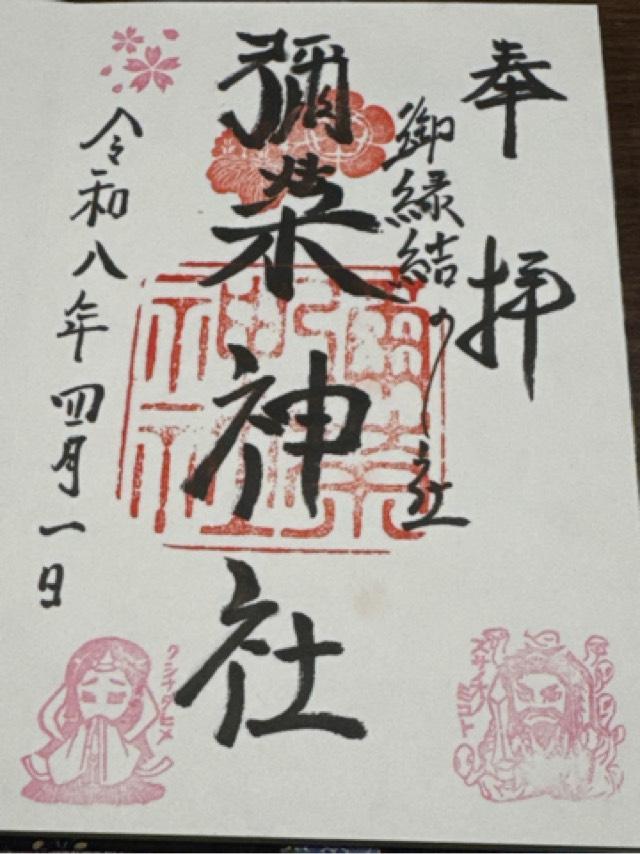 奉拝
御縁結の社
彌榮神社
令和八年四月一日
スサノオノミコト
クシナダヒメ